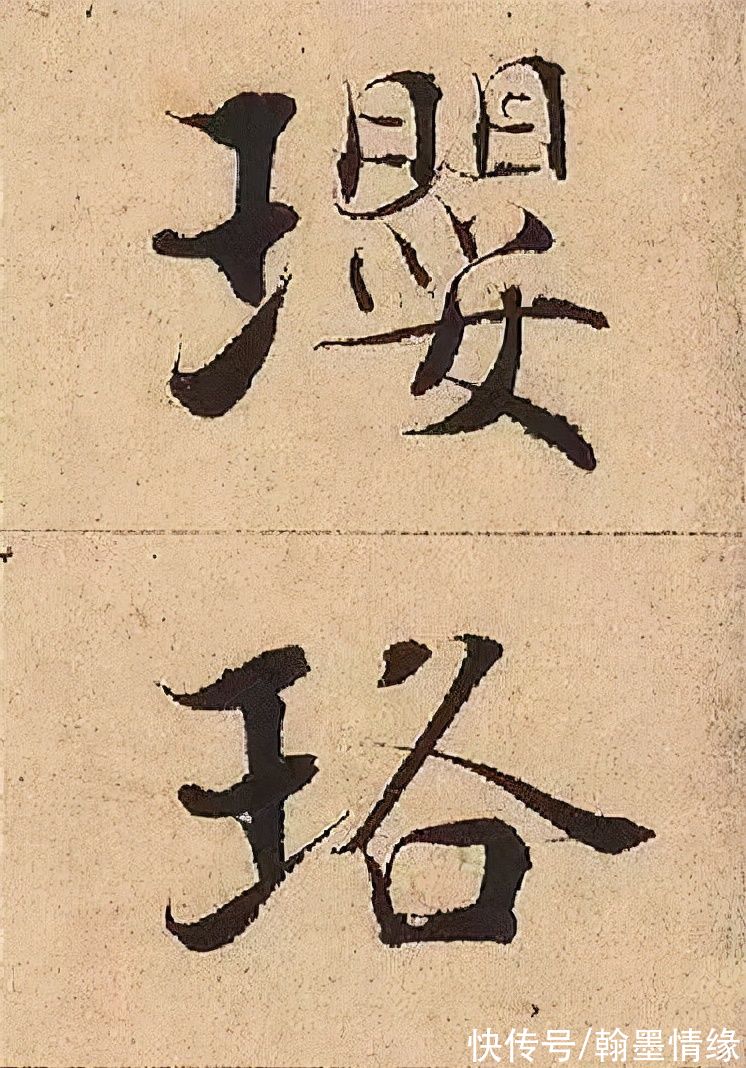 瓔
珞
快传号/翰墨情缘